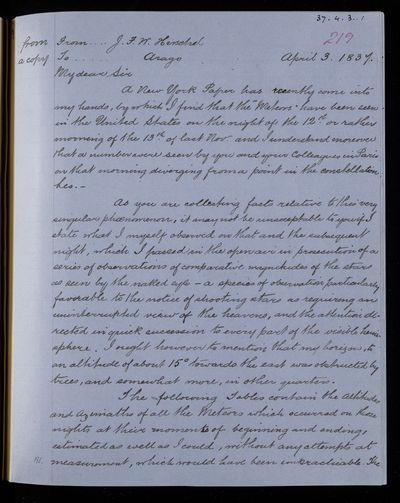 37.4.3.1
219
from
a copy
From.... J. F. W. Herschel
To...... Arago April 3. 1837.
My dear Sir
A New York Paper has recently come into
my hands, by which I find that the "Meteors" have been seen
in the United States on the night of the 12th or rather
morning of the 13th of last Nov. and I understand moreover
that a number were seen by you and your Colleagues in Paris
on that morning diverging from a point in the constellation
Leo. —
As you are collecting facts relative to this very
singular phœnomenon, it may not be unacceptable to you if I
state what I myself observed on that and the subsequent
night, which I passed in the open air in prosecution of a
series of observations of comparative magnitudes of the stars
as seen by the naked eye - a species of observation particularly
favorable to the notice of shooting stars as requiring an
uninterrupted view of the heavens, and the attention di-
rected in quick succession to every part of the visible hemi-
sphere. I ought however to mention that my horizon, to
an altitude of about 15° towards the east was obstructed by
trees, and somewhat more, in other quarters.
The following Tables contain the Altitudes
and Azimuths of all the Meteors which occurred on those
nights at their moments of beginning and ending,
estimated as well as I could, without any attempts at
measurement, which would have been impracticable. The